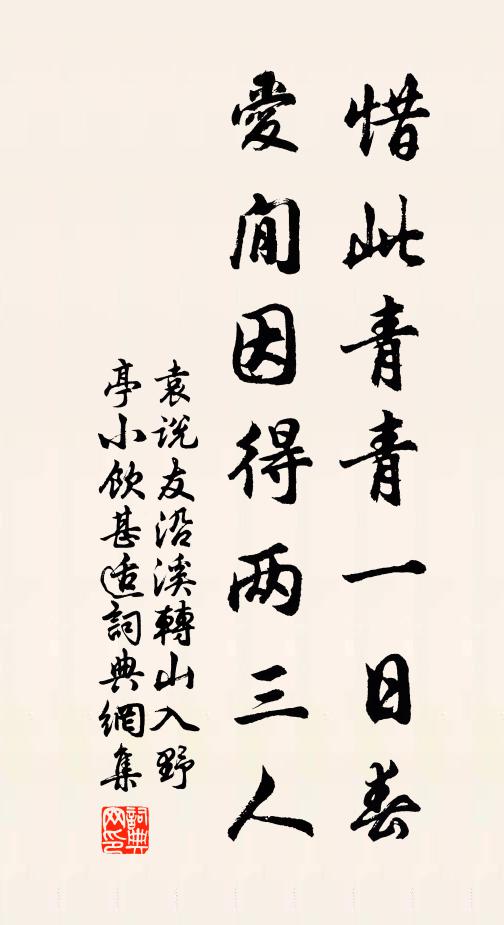 惜此青青一日春
愛閒因得两三人
袁説友沿溪轉山入野
亭小飲甚适詞典網集
詞典
网印